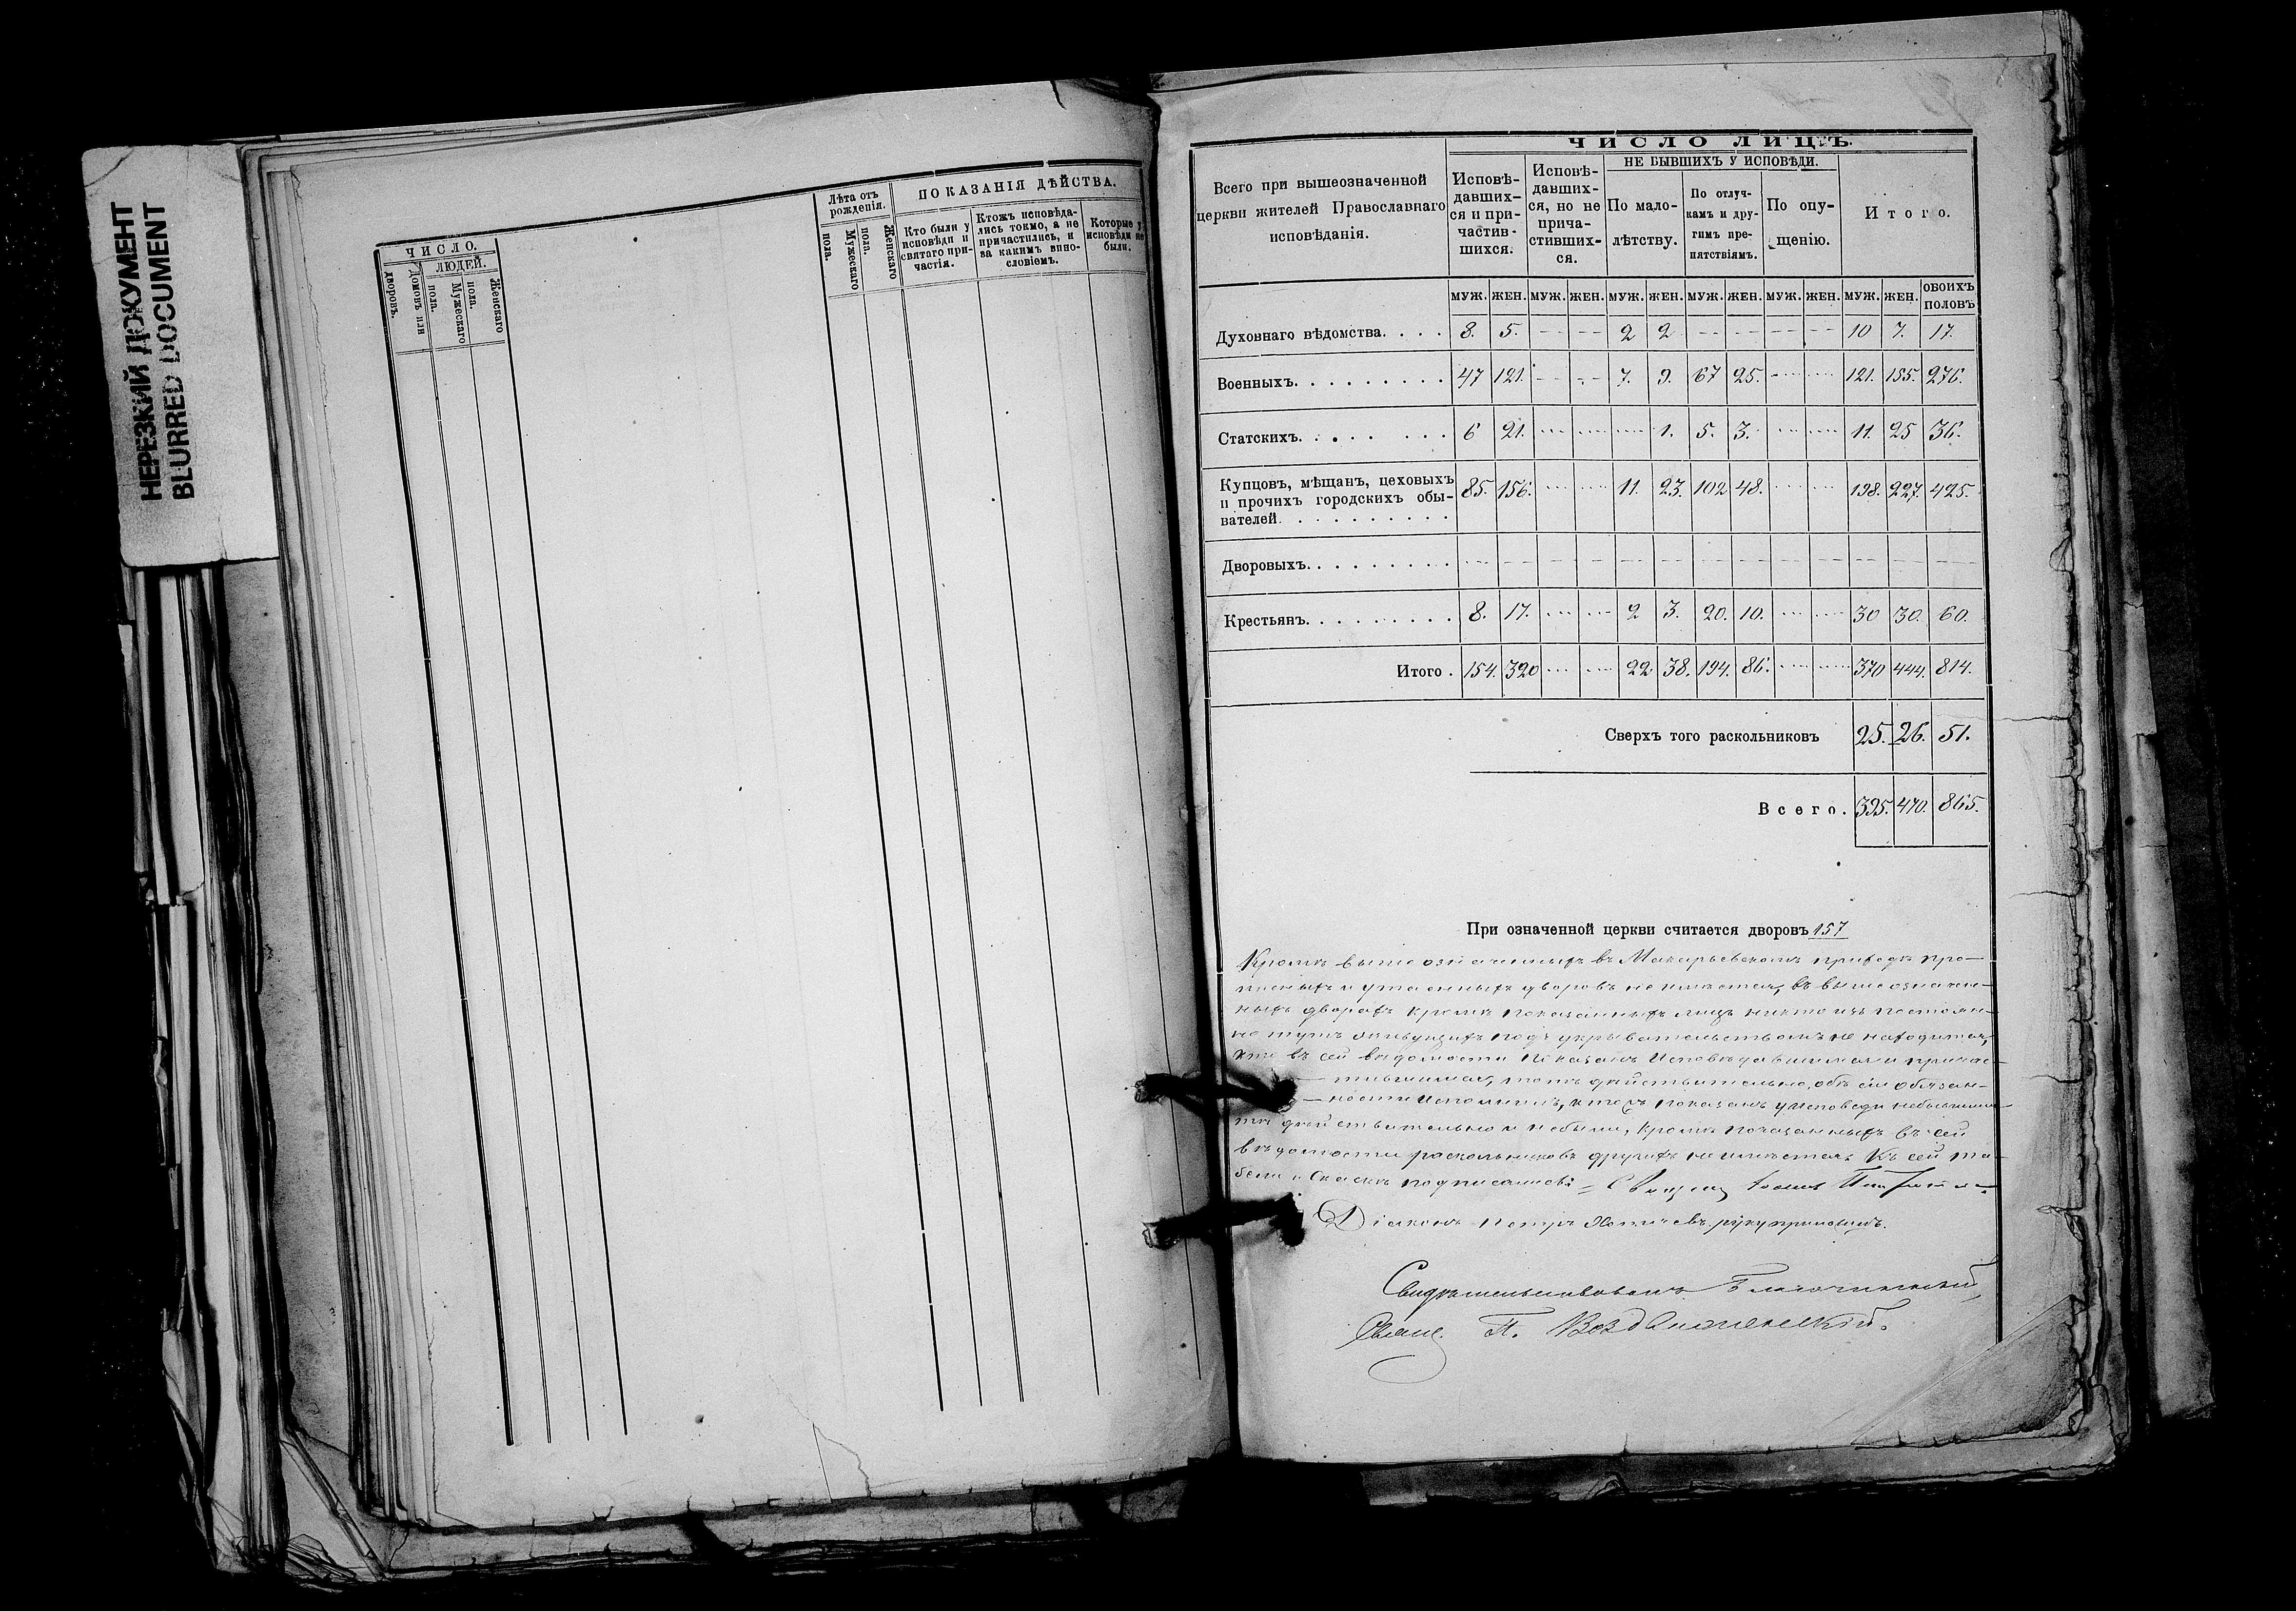 НЕРЕЗКИЙ ДОКУМЕНТ
BLURRED DOCUMENT
ЧИСЛО.
Домовъ или дворовъ.
ЛЮДЕЙ.
Мужескаго пола.
Женскаго пола.
Лѣта отъ рожденія.
Мужескаго пола.
Женскаго пола.
ПОКАЗАНІЯ ДѢЙСТВА.
Кто были у исповѣди и святаго причастія.
Ктожъ исповѣдались токмо, а не причастились, и за какимъ винословіемъ.
Которые у исповѣди не были.
Всего при вышеозначенной
церкви жителей Православнаго
исповѣданія.
ЧИСЛО ЛИЦЪ.
Исповѣдавшихся и причастившихся.
Исповѣдавшихся, но не причастившихся.
НЕ БЫВШИХЪ У ИСПОВѢДИ.
По малолѣтству.
По отлучкамъ и другимъ препятствіямъ.
По опущенію.
Итого.
МУЖ. ЖЕН. МУЖ. ЖЕН. МУЖ. ЖЕН. МУЖ. ЖЕН. МУЖ. ЖЕН. МУЖ. ЖЕН. ОБОИХЪ ПОЛОВЪ
Духовнаго вѣдомства. . . . 8. 5. — — 2 2 — — — — 10 7. 17.
Военныхъ. . . . . . . . . 47 121. — — 7. 9. 67 25. — — 121. 155. 276.
Статскихъ. . . . . . . . 6 21. — — — 1. 5. 3. — — 11. 25 36.
Купцовъ, мѣщанъ, цеховыхъ
и прочихъ городскихъ обы-
вателей. . . . . . . . . . 85. 156. — — 11. 23. 102 48. — — 198. 227. 425.
Дворовыхъ. . . . . . . . . — — — — — — — — — — — — —
Крестьянъ. . . . . . . . . 8. 17. — — 2 3. 20. 10. — — 30 30. 60.
Итого. 154. 320 — — 22 38. 194. 86. — — 370 444. 814.
Сверхъ того раскольниковъ 25. 26. 51.
Всего. 395. 470. 865.
При означенной церкви считается дворовъ 157
Кромѣ выше означенныхъ въ Макарьевскомъ приходѣ про-
писныхъ и утаенныхъ дворовъ не имѣется, въ выше означен-
ныхъ дворахъ кромѣ показанныхъ лицъ никто изъ постоян-
но тутъ живущихъ подъ укрывательствомъ не находится,
кто въ сей вѣдомости показанъ исповѣдавшимся и причас-
тившимся, тотъ дѣйствительно обѣ сіи обязан-
ности исполнилъ, кто показанъ у исповеди небывшимъ
тѣ дѣйствительно и небыли, кромѣ показанныхъ въ сей
вѣдомости раскольниковъ другихъ не имѣется. Къ сей та-
бели и сказкѣ подписались
Діаконъ Петръ руку приложилъ.
Свидѣтельствовалъ Благочинный
Свящ. П. Воздвиженскій.